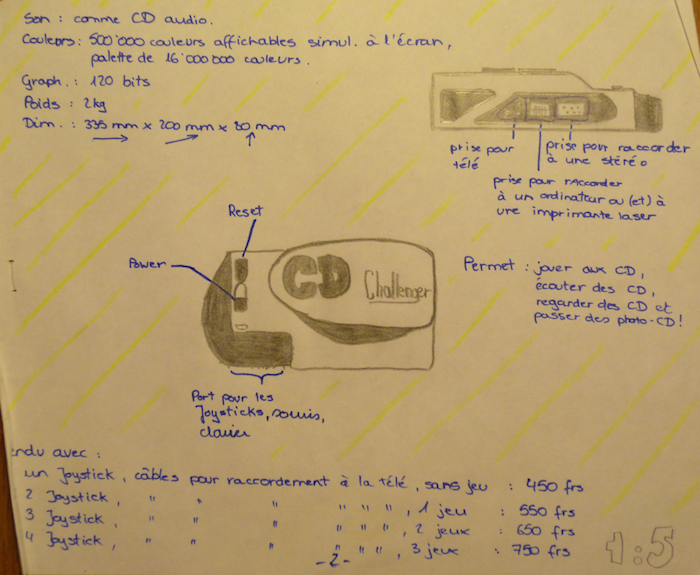 Son : comme CD audio.
Couleurs : 500'000 couleurs affichables simul. à l'écran,
palette de 16'000'000 couleurs.
Graph. : 120 bits
Poids : 2kg
Dim. : 335 mm x 200 mm x 80 mm
prise pour
télé
prise pour raccorder
à une stéréo
prise pour rAccorder
à un ordinateur ou (et) à
une imprimante laser
Reset
Power
CD
Challenger
Permet : jouer aux CD,
écouter des CD,
regarder des CD et
passer des photo-CD!
Port pour les
Joysticks, souris,
clavier
endu avec :
un Joystick, câbles pour raccordement à la télé, sans jeu : 450 frs
2 Joystick, " " " " " ", 1 jeu : 550 frs
3 Joystick, " " " " " ", 2 jeux : 650 frs
4 Joystick, " " " " " ", 3 jeux : 750 frs
-2-
1:5